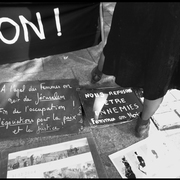 ON !
À l'appel des femmes en
noir de Jérusalem
Fin de l'occupation
négociations pour la paix
et la justice
NOUS REFUSONS
D'ÊTRE
ENNEMIES
Femmes en Noir